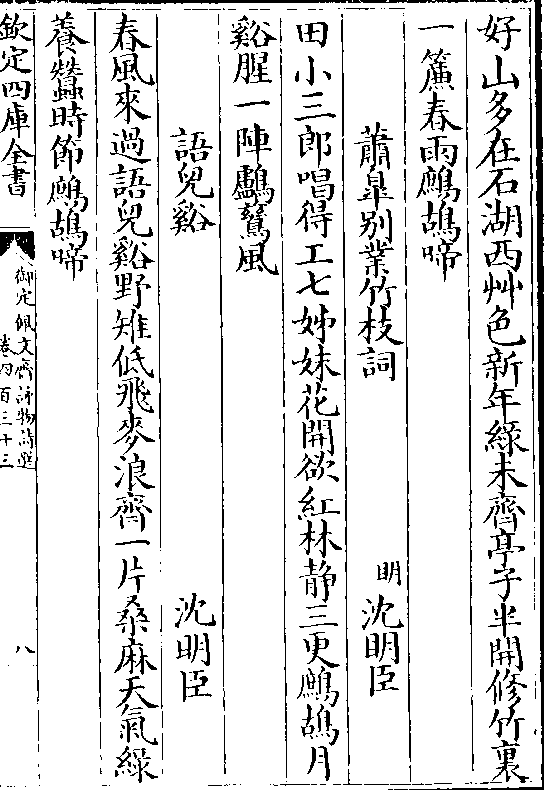 好山多在石湖西艸色新年緑未齊亭子半開修竹裏
一簾春雨鷓鴣啼
蕭臯别業竹枝詞 明 沈明臣
田小三郎唱得工七姊妹花開欲紅林静三更鷓鴣月
谿腥一陣鸕鶿風
語兒谿 沈明臣
春風來過語兒谿野雉低飛麥浪齊一片桑麻天氣緑
養蠶時節鷓鴣啼
欽定四庫全書
御定佩文齋詠物詩選
卷四百三十三
八